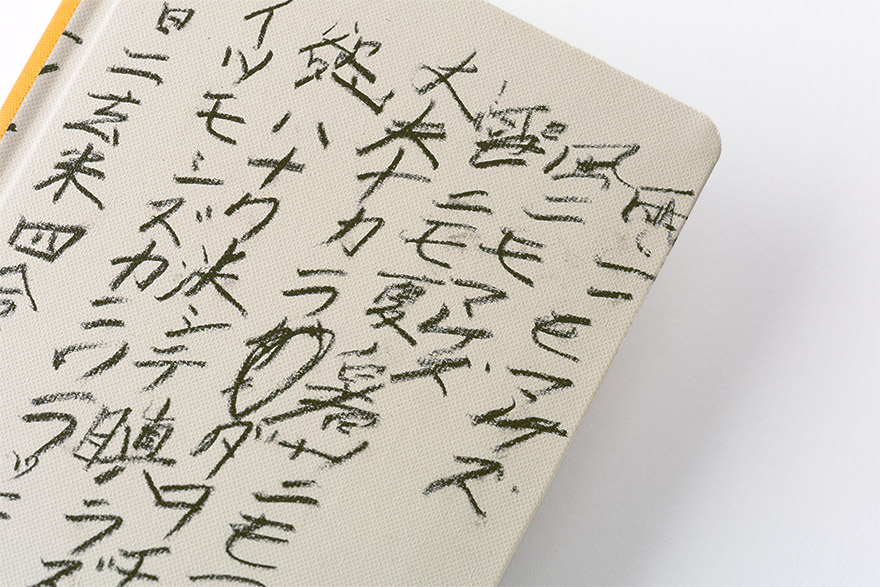 雨ニモマケズ
風ニモマケズ
雪ニモ夏ノ暑サニモ
丈夫ナカラダヲモチ
慾ハナク
決シテ瞋ラズ
イツモシヅカニワラッ
日ニ玄米四合